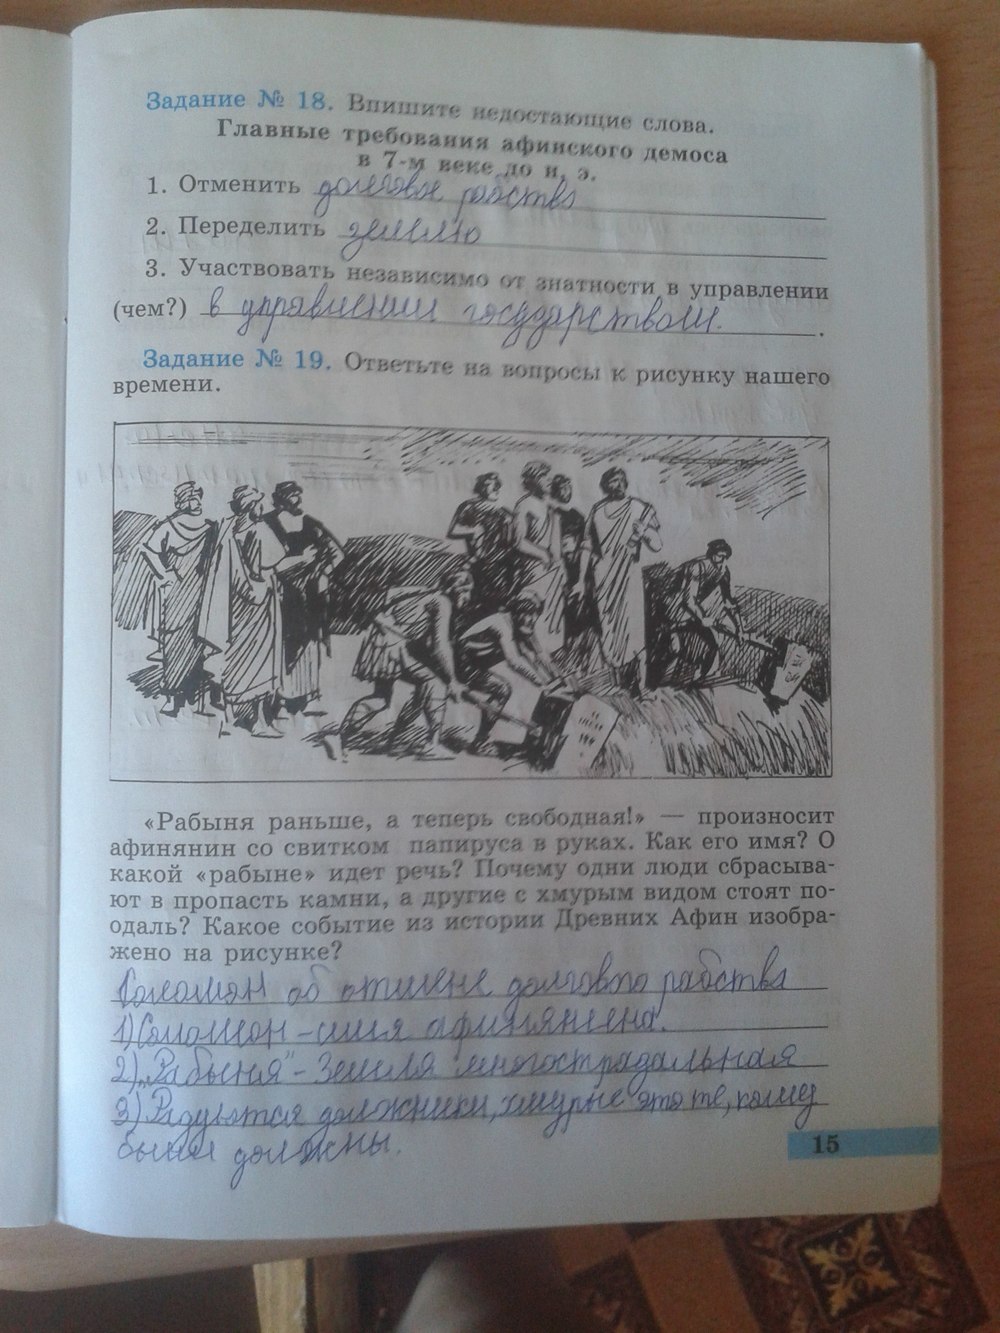 Задание № 18. Впишите недостающие слова.
Главные требования афинского демоса
в 7-м веке до н. э.
1. Отменить долговое рабство
2. Переделить землю
3. Участвовать независимо от знатности в управлении
(чем?) в управлении государством.
Задание № 19. Ответьте на вопросы к рисунку нашего
времени.
«Рабыня раньше, а теперь свободная!» — произносит
афинянин со свитком папируса в руках. Как его имя? О
какой «рабыне» идет речь? Почему одни люди сбрасыва-
ют в пропасть камни, а другие с хмурым видом стоят по-
одаль? Какое событие из истории Древних Афин изобра-
жено на рисунке?
об отмене долгового рабства
1) Соломон - имя афинянена.
2) „Рабыня" - Земля многострадальная
3) Радуются должники, хмурые это те, кому
были должны.
15